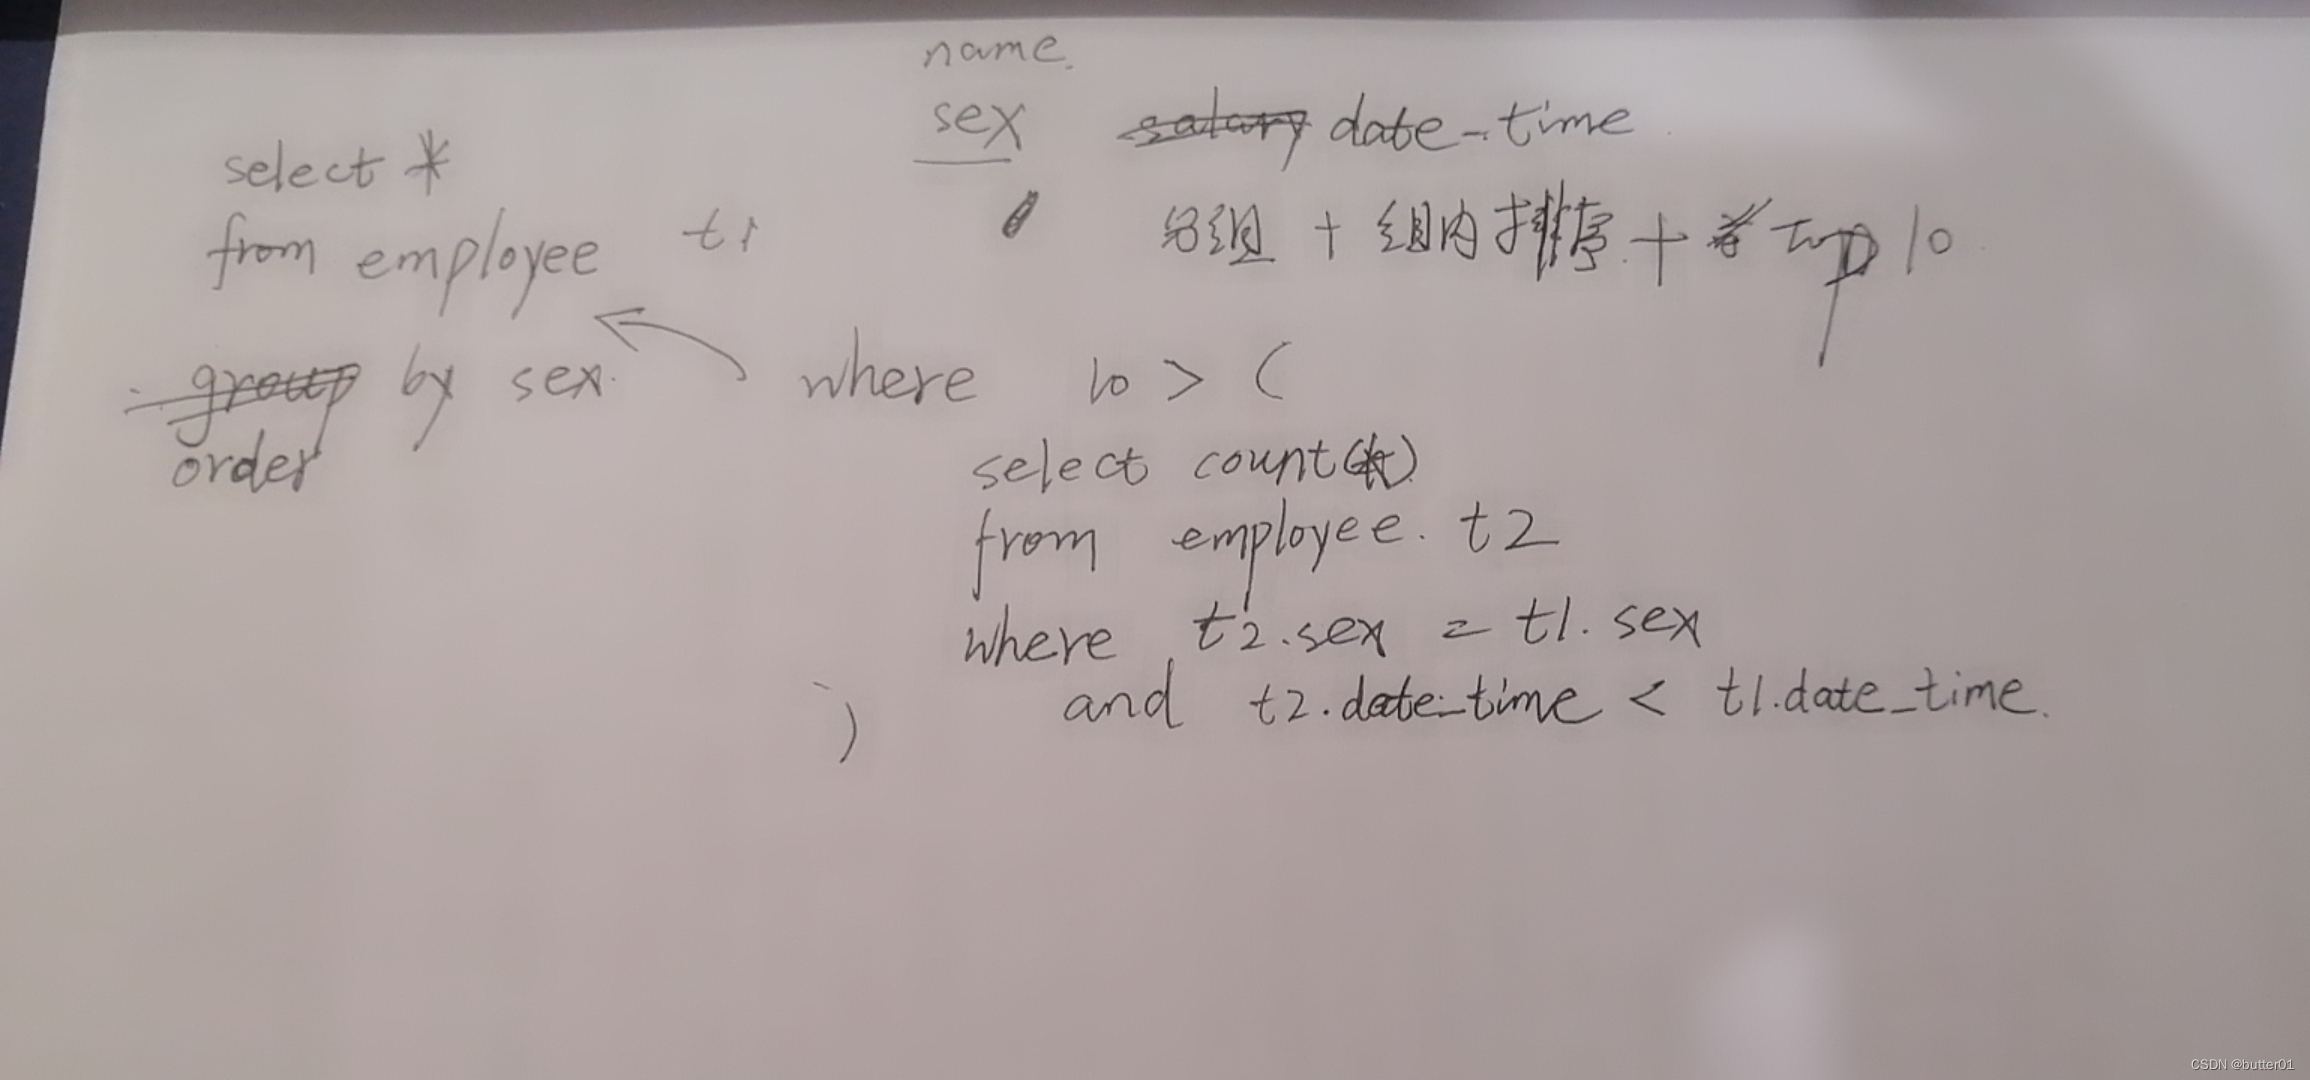 name.
sex salary date_time
分组 + 组内排序 + top 10
select *
from employee t1
group by sex.
order
where 10 > (
select count(*)
from employee. t2
where t2.sex = t1.sex
and t2.date_time < t1.date_time.
)
CSDN @butter01